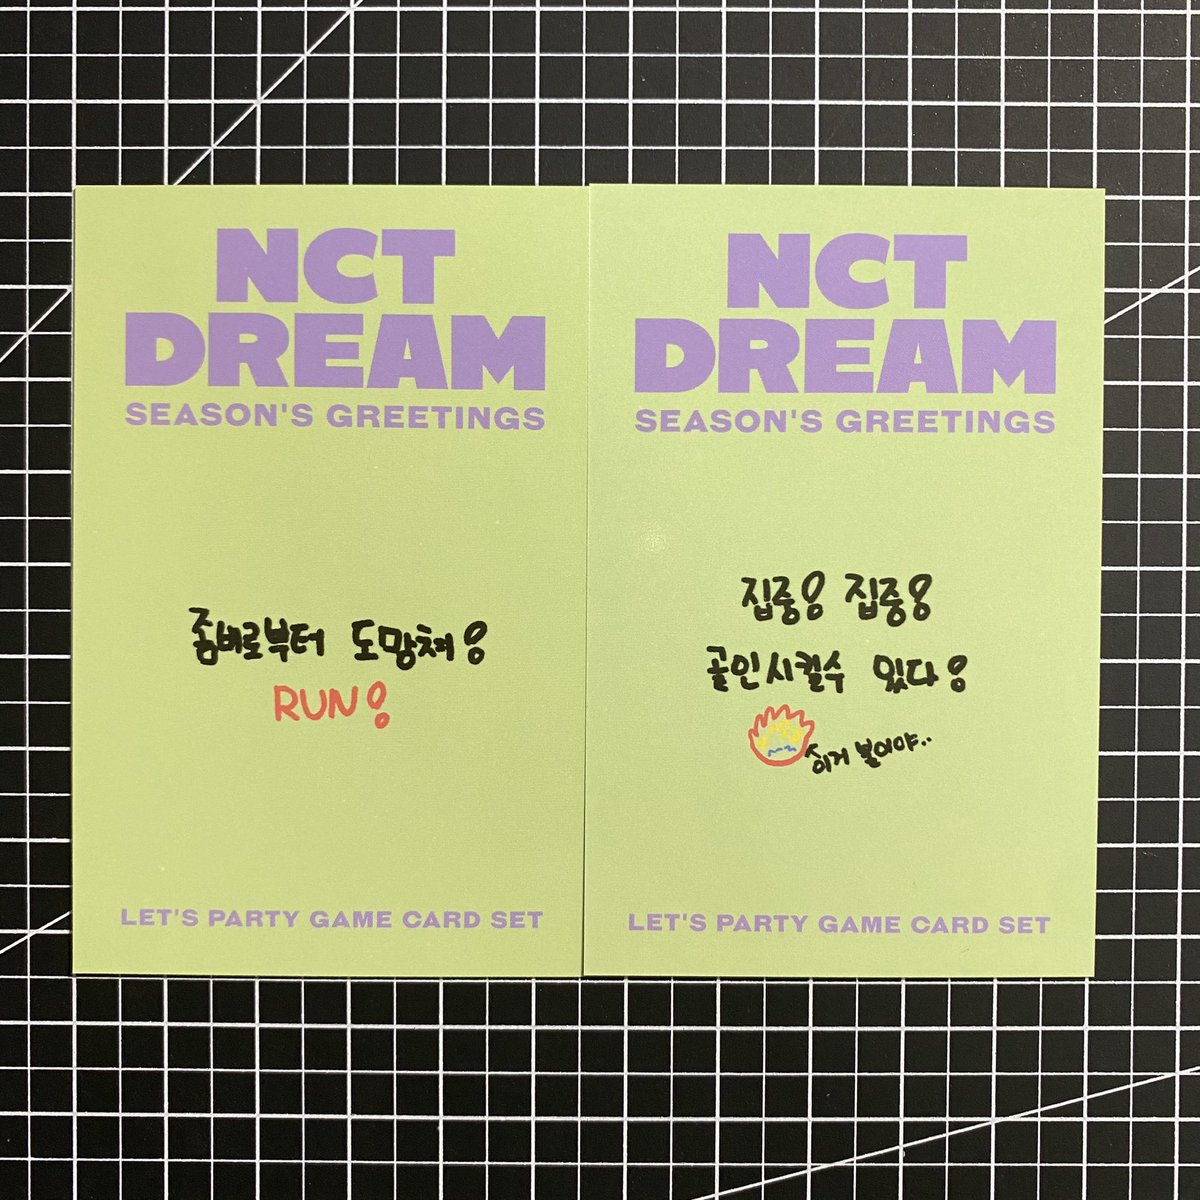 NCT
DREAM
SEASON'S GREETINGS
좀비로부터 도망쳐!
RUN!
LET'S PARTY GAME CARD SET
NCT
DREAM
SEASON'S GREETINGS
집중! 집중!
골인시킬수 있다!
이거 불이야..
LET'S PARTY GAME CARD SET